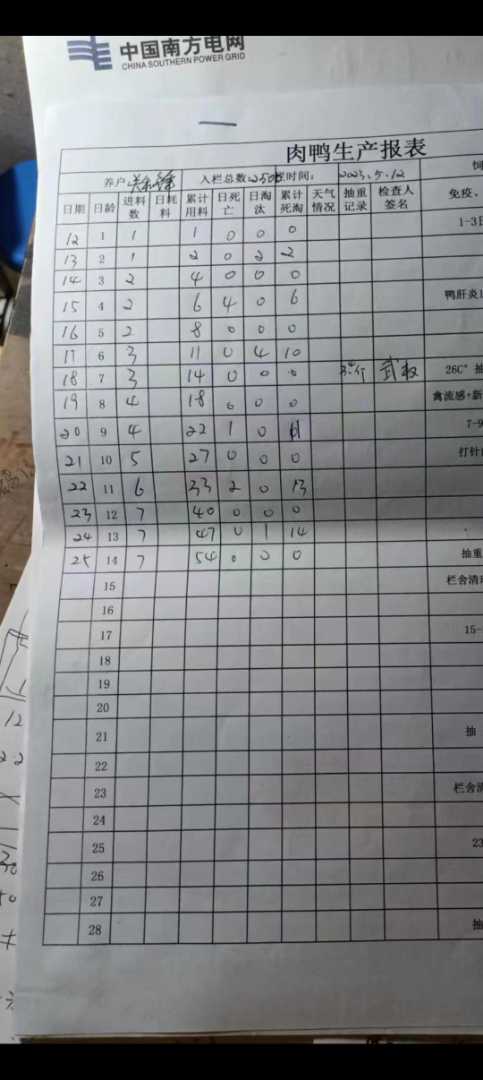 中国南方电网
CHINA SOUTHERN POWER GRID
肉鸭生产报表
养户 入栏总数 250 时间: 2023.5.12 饲
日期 日龄 进料数 日耗料 累计用料 日死亡 日淘汰 累计死淘 天气情况 抽重记录 检查人签名 免疫、
12 1 1 1 0 0 0 1-3日
13 2 1 2 0 2 2
14 3 2 4 0 0 0
15 4 2 6 4 0 6 鸭肝炎
16 5 2 8 0 0 0
17 6 3 11 0 4 10
18 7 3 14 0 0 0 26C° 抽
19 8 4 18 0 0 0 禽流感+新
20 9 4 22 1 0 7-9
21 10 5 27 0 0 0 打针
22 11 6 33 2 0 13
23 12 7 40 0 0 0
24 13 7 47 0 1 14
25 14 7 54 0 0 0 抽重
15 栏舍清
16
17 15-
18
19
20
21 抽
22
23 栏舍清
24
25 23
26
27
28 抽